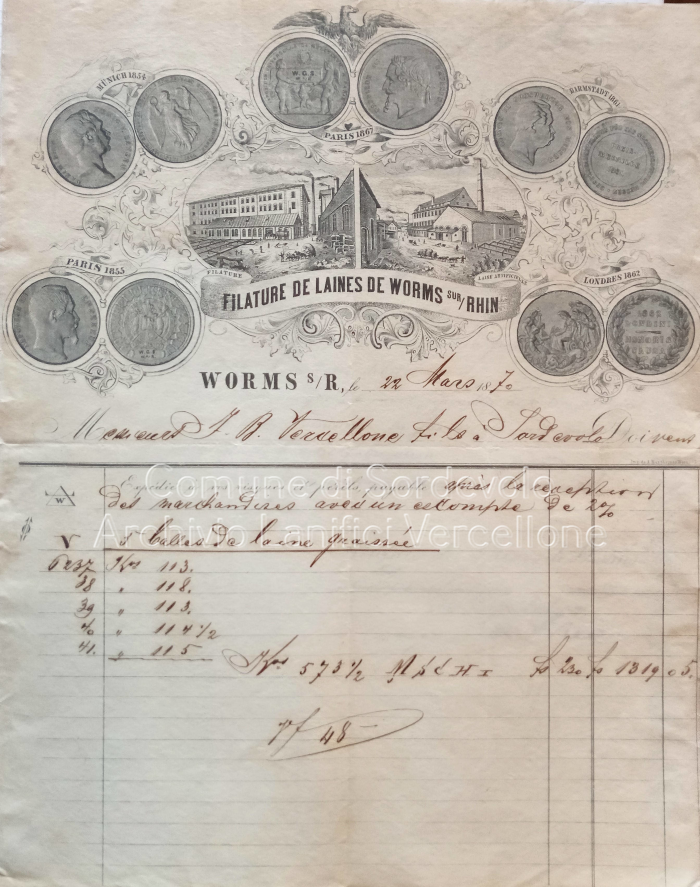 MUNICH 1854
PARIS 1867
DARMSTADT 1861
W.G.S
PARIS 1855
LONDRES 1862
FILATURE
LAINE ARTIFICI
FILATURE DE LAINES DE WORMS SUR/RHIN
WORMS S/R, le 22 Mars 1870
Messieurs J. B. Vercellone fils à Sordevolo Doivent
Comune di Sordevolo
Expédié à vos risques et périls, payable après la reception
des marchandises avec un escompte de 2%
Archivio Lanifici Vercellone
V 5 balles de laine graissée
6237 Kos 113.
38 " 118.
39 " 113.
40 " 114 1/2
41. " 115
Kos 573 1/2 fs 230 fs 1319 05.
48 —